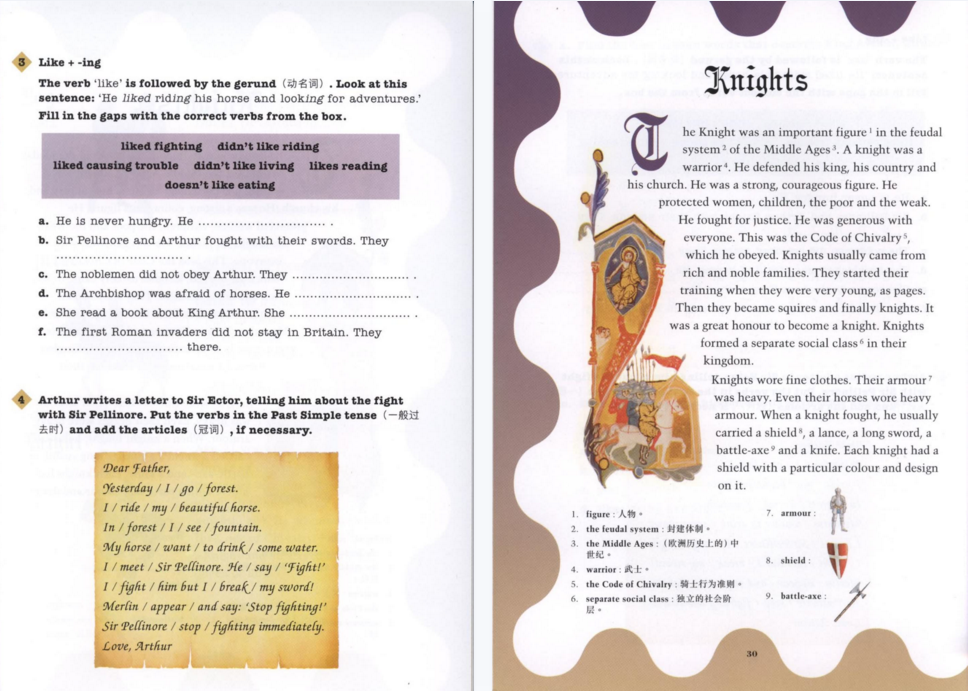 3 Like + -ing
The verb 'like' is followed by the gerund (动名词). Look at this
sentence: 'He liked riding his horse and looking for adventures.'
Fill in the gaps with the correct verbs from the box.
liked fighting didn't like riding
liked causing trouble didn't like living likes reading
doesn't like eating
a. He is never hungry. He ................................ .
b. Sir Pellinore and Arthur fought with their swords. They
................................ .
c. The noblemen did not obey Arthur. They ................................ .
d. The Archbishop was afraid of horses. He ................................ .
e. She read a book about King Arthur. She ................................ .
f. The first Roman invaders did not stay in Britain. They
................................ there.
4 Arthur writes a letter to Sir Ector, telling him about the fight
with Sir Pellinore. Put the verbs in the Past Simple tense (一般过
去时) and add the articles (冠词), if necessary.
Dear Father,
Yesterday / I / go / forest.
I / ride / my / beautiful horse.
In / forest / I / see / fountain.
My horse / want / to drink / some water.
I / meet / Sir Pellinore. He / say / 'Fight!'
I / fight / him but I / break / my sword!
Merlin / appear / and say: 'Stop fighting!'
Sir Pellinore / stop / fighting immediately.
Love, Arthur
Knights
The Knight was an important figure 1 in the feudal
system 2 of the Middle Ages 3. A knight was a
warrior 4. He defended his king, his country and
his church. He was a strong, courageous figure. He
protected women, children, the poor and the weak.
He fought for justice. He was generous with
everyone. This was the Code of Chivalry 5,
which he obeyed. Knights usually came from
rich and noble families. They started their
training when they were very young, as pages.
Then they became squires and finally knights. It
was a great honour to become a knight. Knights
formed a separate social class 6 in their
kingdom.
Knights wore fine clothes. Their armour 7
was heavy. Even their horses wore heavy
armour. When a knight fought, he usually
carried a shield 8, a lance, a long sword, a
battle-axe 9 and a knife. Each knight had a
shield with a particular colour and design
on it.
1. figure : 人物。
2. the feudal system : 封建体制。
3. the Middle Ages : (欧洲历史上的) 中
世纪。
4. warrior : 武士。
5. the Code of Chivalry : 骑士行为准则。
6. separate social class : 独立的社会阶
层。
7. armour :
8. shield :
9. battle-axe :
30